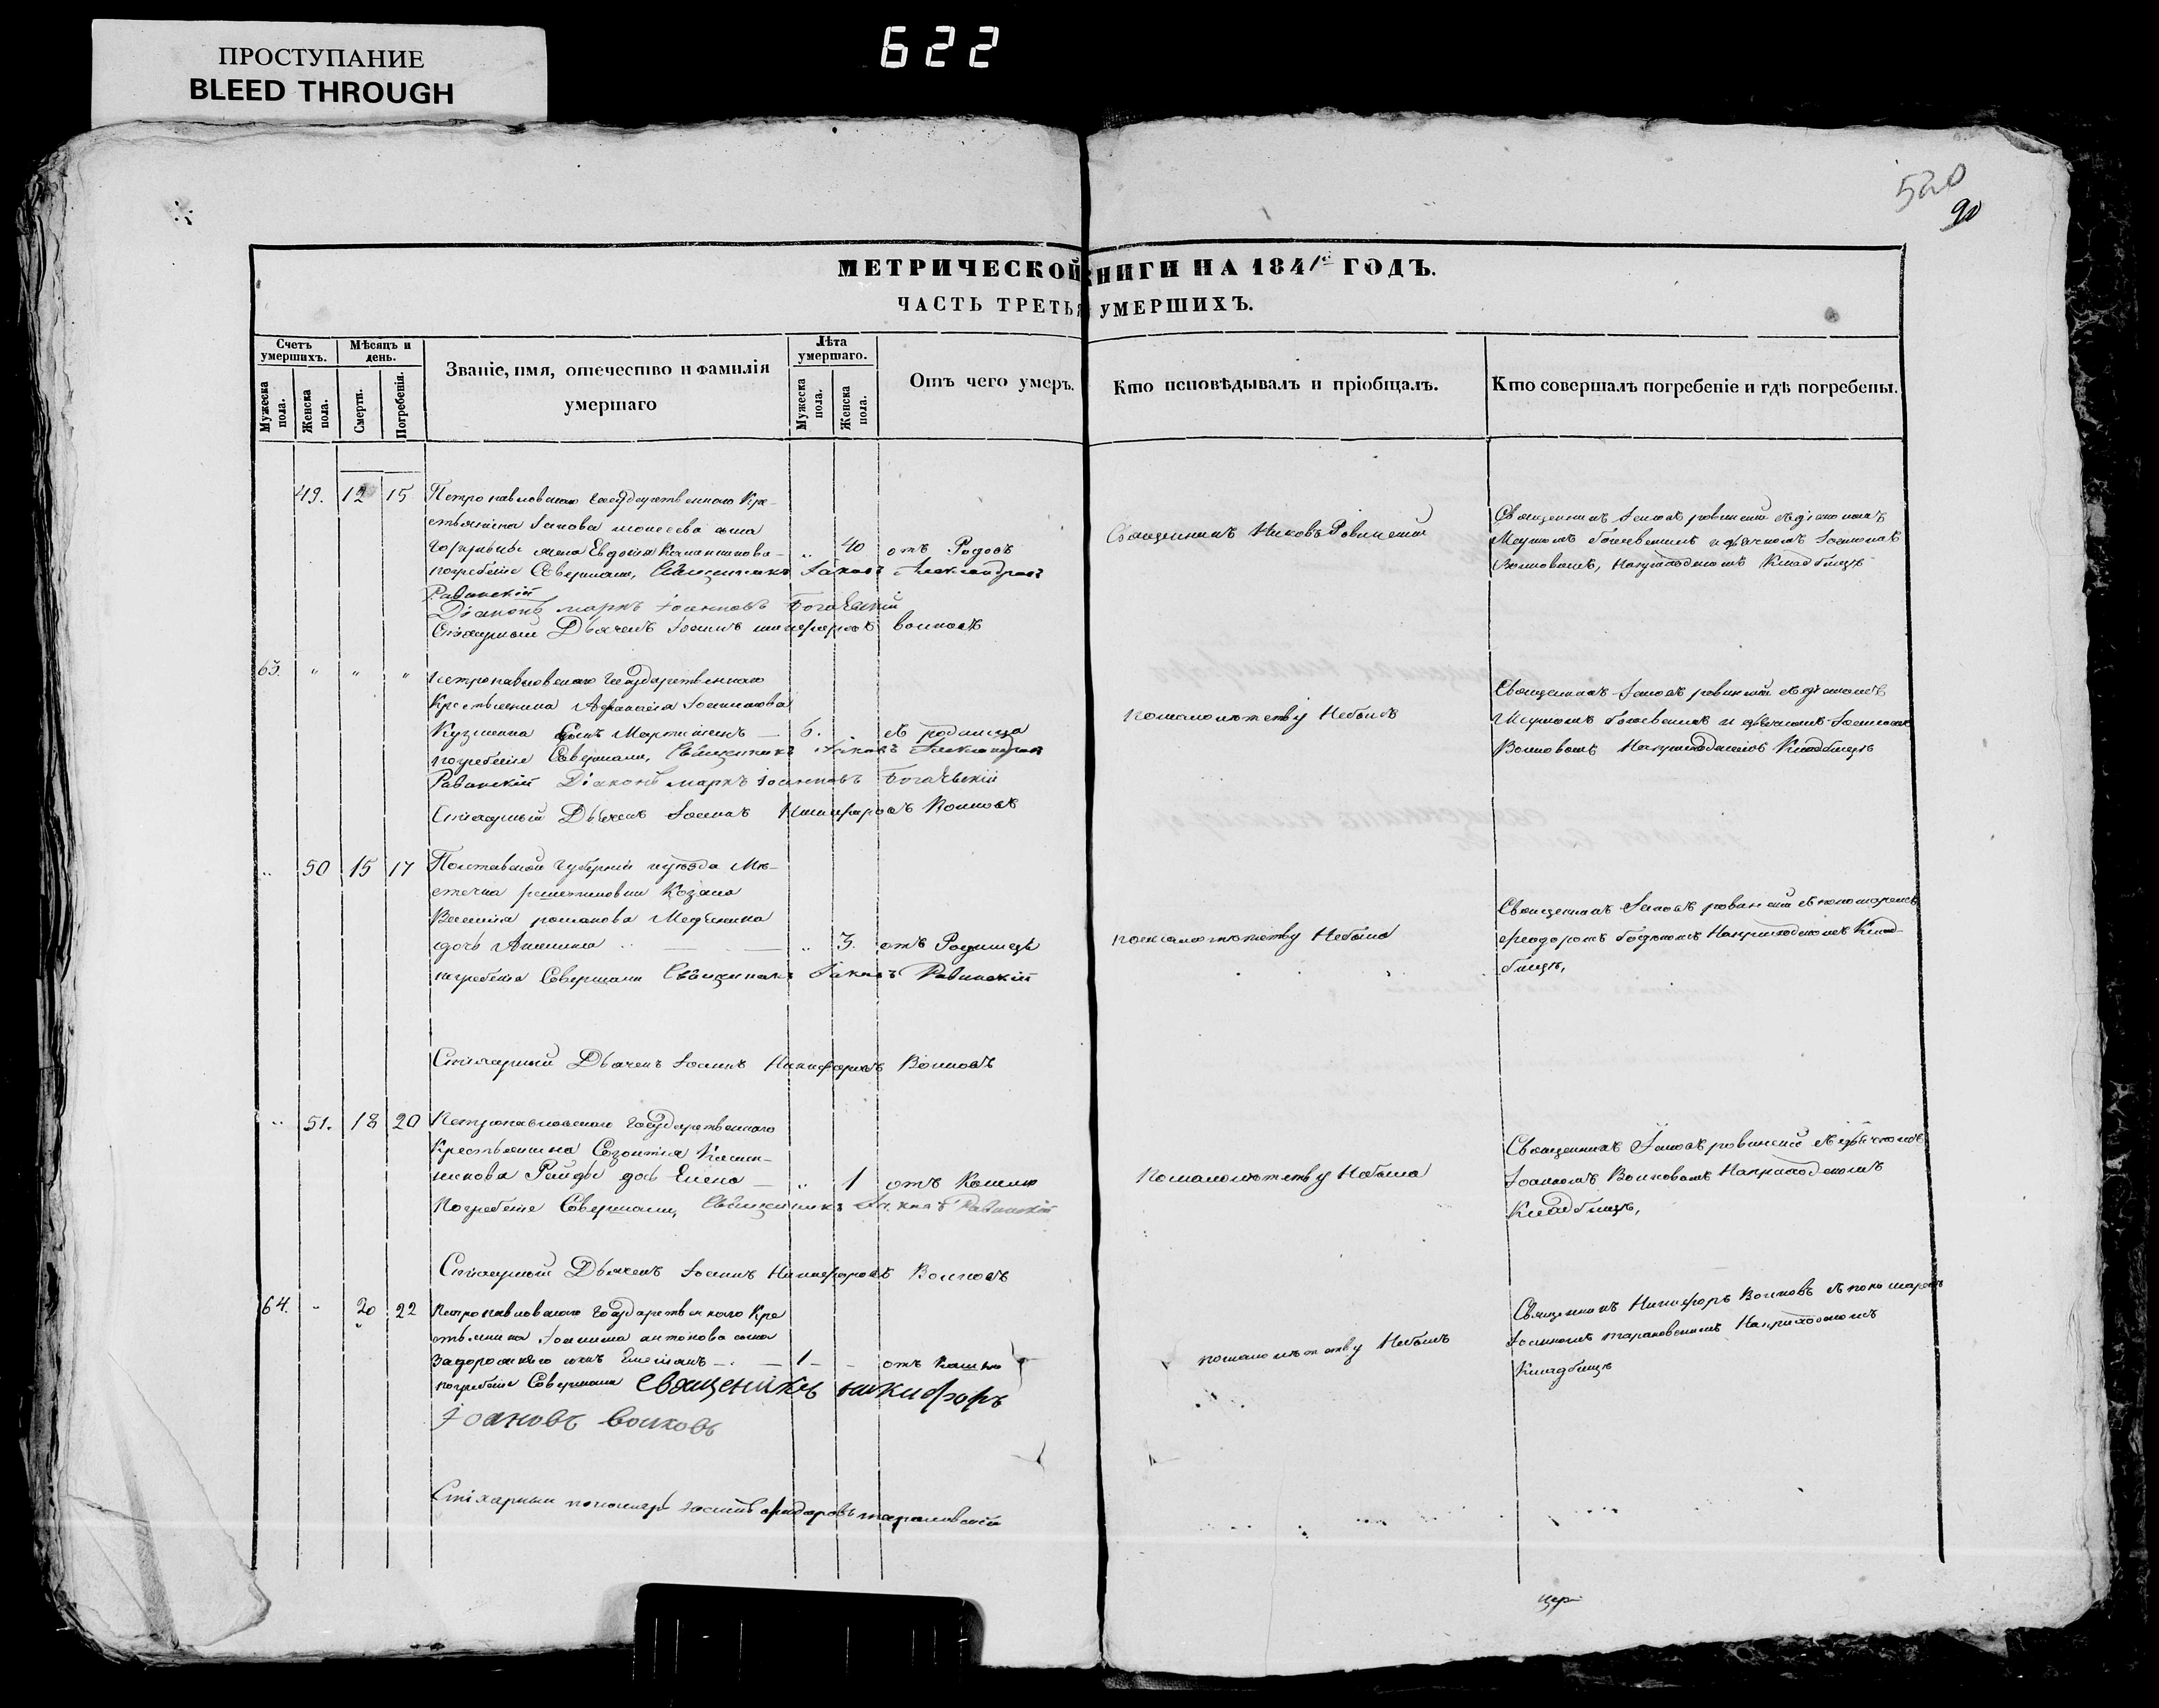 ПРОСТУПАНИЕ
BLEED THROUGH
622
520
90
МЕТРИЧЕСКОЙ КНИГИ НА 1841й ГОДЪ.
ЧАСТЬ ТРЕТЬЯ УМЕРШИХЪ.
Счетъ умершихъ.
Мужеска пола.
Женска пола.
Мѣсяцъ и день.
Смерти.
Погребенія.
Званіе, имя, отечество и фамилія умершаго
Лѣта умершаго.
Мужеска пола.
Женска пола.
Отъ чего умеръ.
Кто исповѣдывалъ и пріобщалъ.
Кто совершалъ погребеніе и гдѣ погребены.
49. 12 15 Петропавловскаго Государственнаго Кре-
стьянина Іакова Моисеева сына
жена Евдокія 40 отъ Родовъ
погребеніе Совершали, Священникъ Іаковъ Александровъ
Равинскій
Діаконъ Маркъ Іоанновъ Богаевскій
Стихарный Дьячекъ Іоаннъ Никифоровъ Волковъ
Священникъ Іаковъ Равинскій
Священникъ Іаковъ Равинскій съ діакономъ
Маркомъ Богаевскимъ и дьячкомъ Іоанномъ
Волковымъ, На приходскомъ Кладбищѣ
63. " " " Петропавловскаго Государственнаго
Крестьянина Афанасія Іоаннова
Кузменка сынъ 6. съ родимца
погребеніе Совершали, Священникъ Іаковъ Александровъ
Равинскій Діаконъ Маркъ Іоанновъ Богаевскій
Стихарный Дьячекъ Іоаннъ Никифоровъ Волковъ
По малолѣтству Небылъ
Священникъ Іаковъ Равинскій съ діакономъ
Маркомъ Богаевскимъ и дьячкомъ Іоанномъ
Волковымъ На приходскомъ Кладбищѣ
50 15 17 Полтавской Губерніи и уѣзда Мѣ-
стечка Решетиловки Козака
Василія Романова
дочь 3. отъ Родимца
погребеніе Совершали Священникъ Іаковъ Равинскій
Стихарный Дьячекъ Іоаннъ Никифоровъ Волковъ
по малолѣтству Небыла
Священникъ Іаковъ Равинскій съ пономаремъ
Феодоромъ На приходскомъ Клад-
бищѣ,
51. 18 20 Петропавловскаго Государственнаго
Крестьянина Созонтія
дочь Елена 1 отъ Кашлю
Погребеніе Совершали, Священникъ Іаковъ Равинскій
Стихарный Дьячекъ Іоаннъ Никифоровъ Волковъ
По малолѣтству Небыла
Священникъ Іаковъ Равинскій съ дьячкомъ
Іоанномъ Волковымъ На приходскомъ
Кладбищѣ,
64. 20 22 Петропавловскаго Государственнаго Кре
стьянина Іоанна Антонова сына
Задорожнего сынъ 1 отъ Кашлю
погребеніе Совершали Священикъ никифоръ
Іоановъ волковъ
Стихарный пономарь Тарановскій
по малолѣтству Небылъ
Священникъ Никифоръ Волковъ съ пономаремъ
Іоанномъ Тарановскимъ На приходскомъ
Кладбищѣ
цер